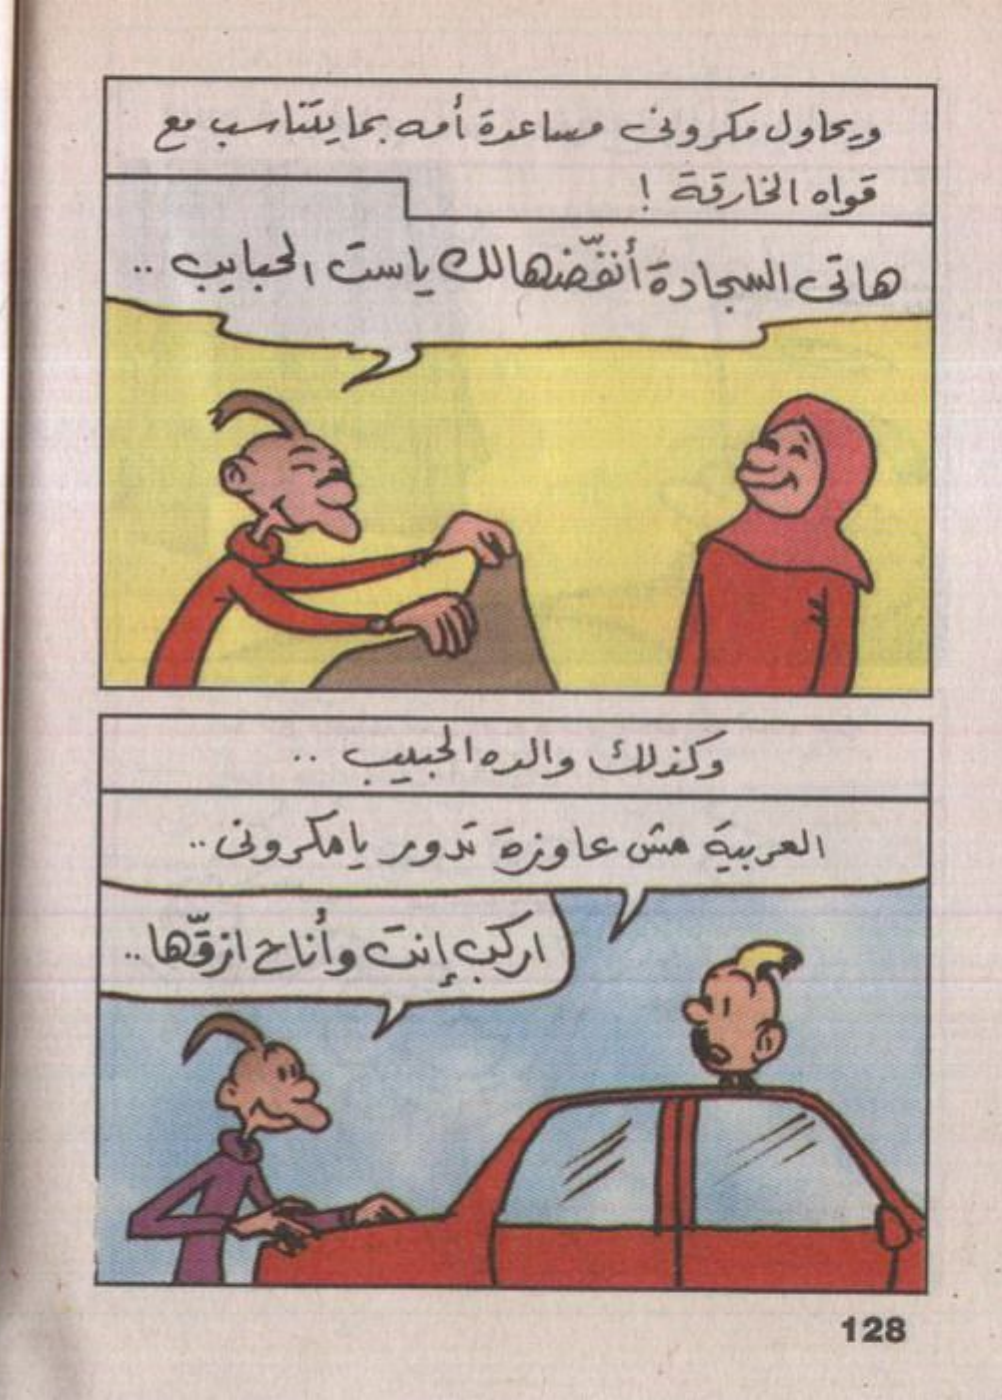 ويحاول مكرونى مساعدة أمه بما يتناسب مع
قواه الخارقة !
هاتى السجادة أنفّضهالك ياست الحبايب ..
وكذلك والده الحبيب ..
العربية مش عاوزة تدور يا مكرونى ..
اركب إنت وأنا ح ازقّها ..
128